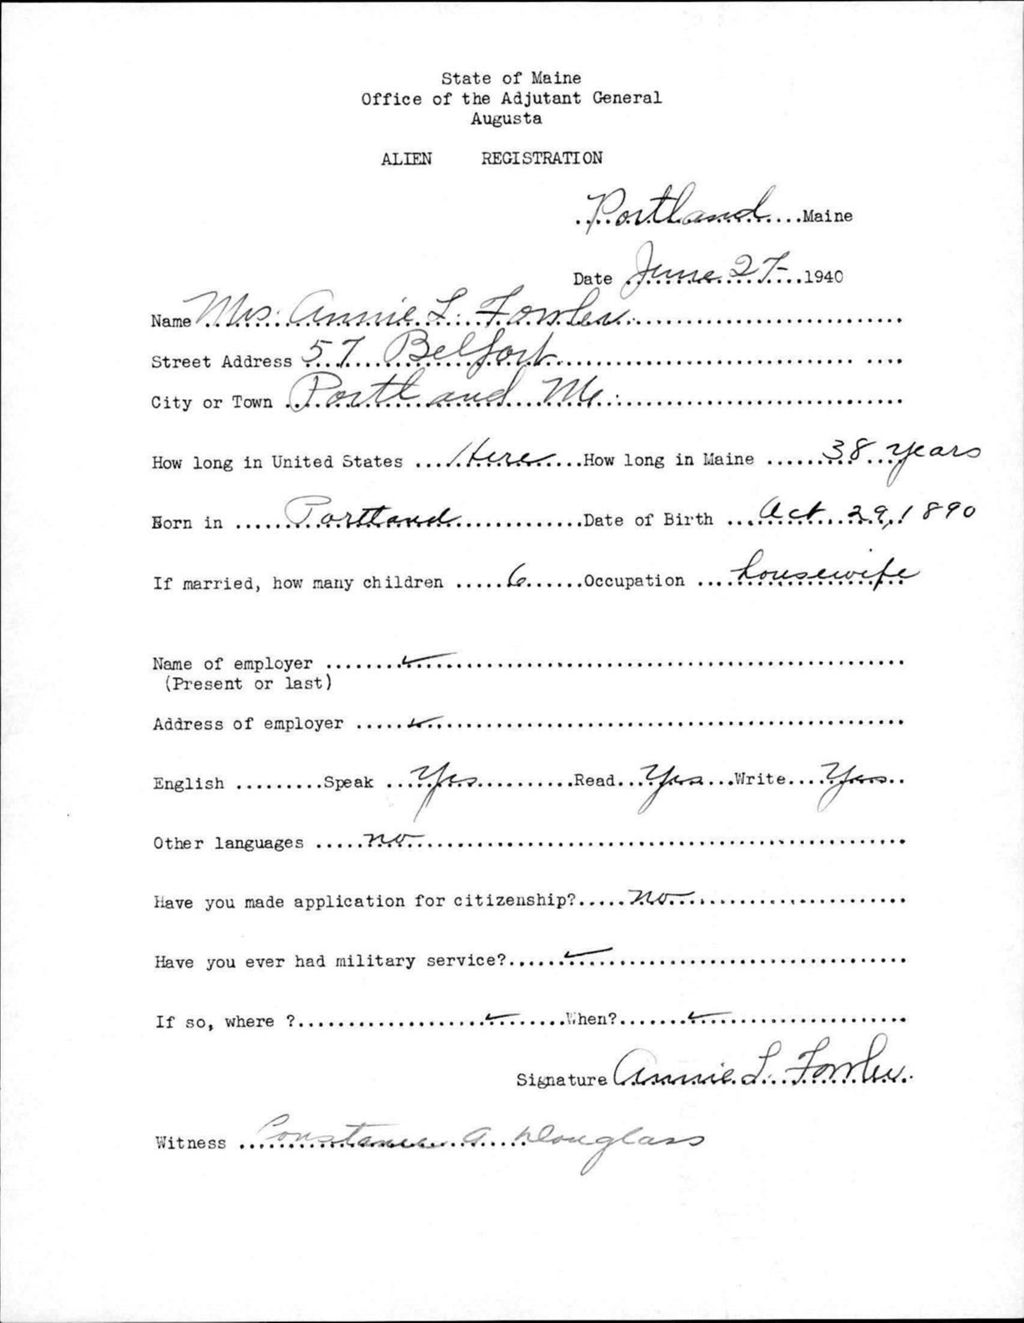 State of Maine
Office of the Adjutant General
Augusta
ALIEN REGISTRATION
Portland....Maine
Date June 27-...1940
Name Mrs. Annie L. Fowler
Street Address 57 Belfort
City or Town Portland Me.
How long in United States ... Here ...How long in Maine ... 38 years
Born in ..... Portland ...Date of Birth ... Oct. 29, 1890
If married, how many children ..... 6 ......Occupation .... housewife
Name of employer ........
(Present or last)
Address of employer .....
English .........Speak .. Yes ...Read... Yes ...Write.... Yes ..
Other languages ..... no
Have you made application for citizenship?..... no
Have you ever had military service?.....
If so, where ?...................When?.......
Signature Annie L. Fowler.
Witness Constance A. Douglass